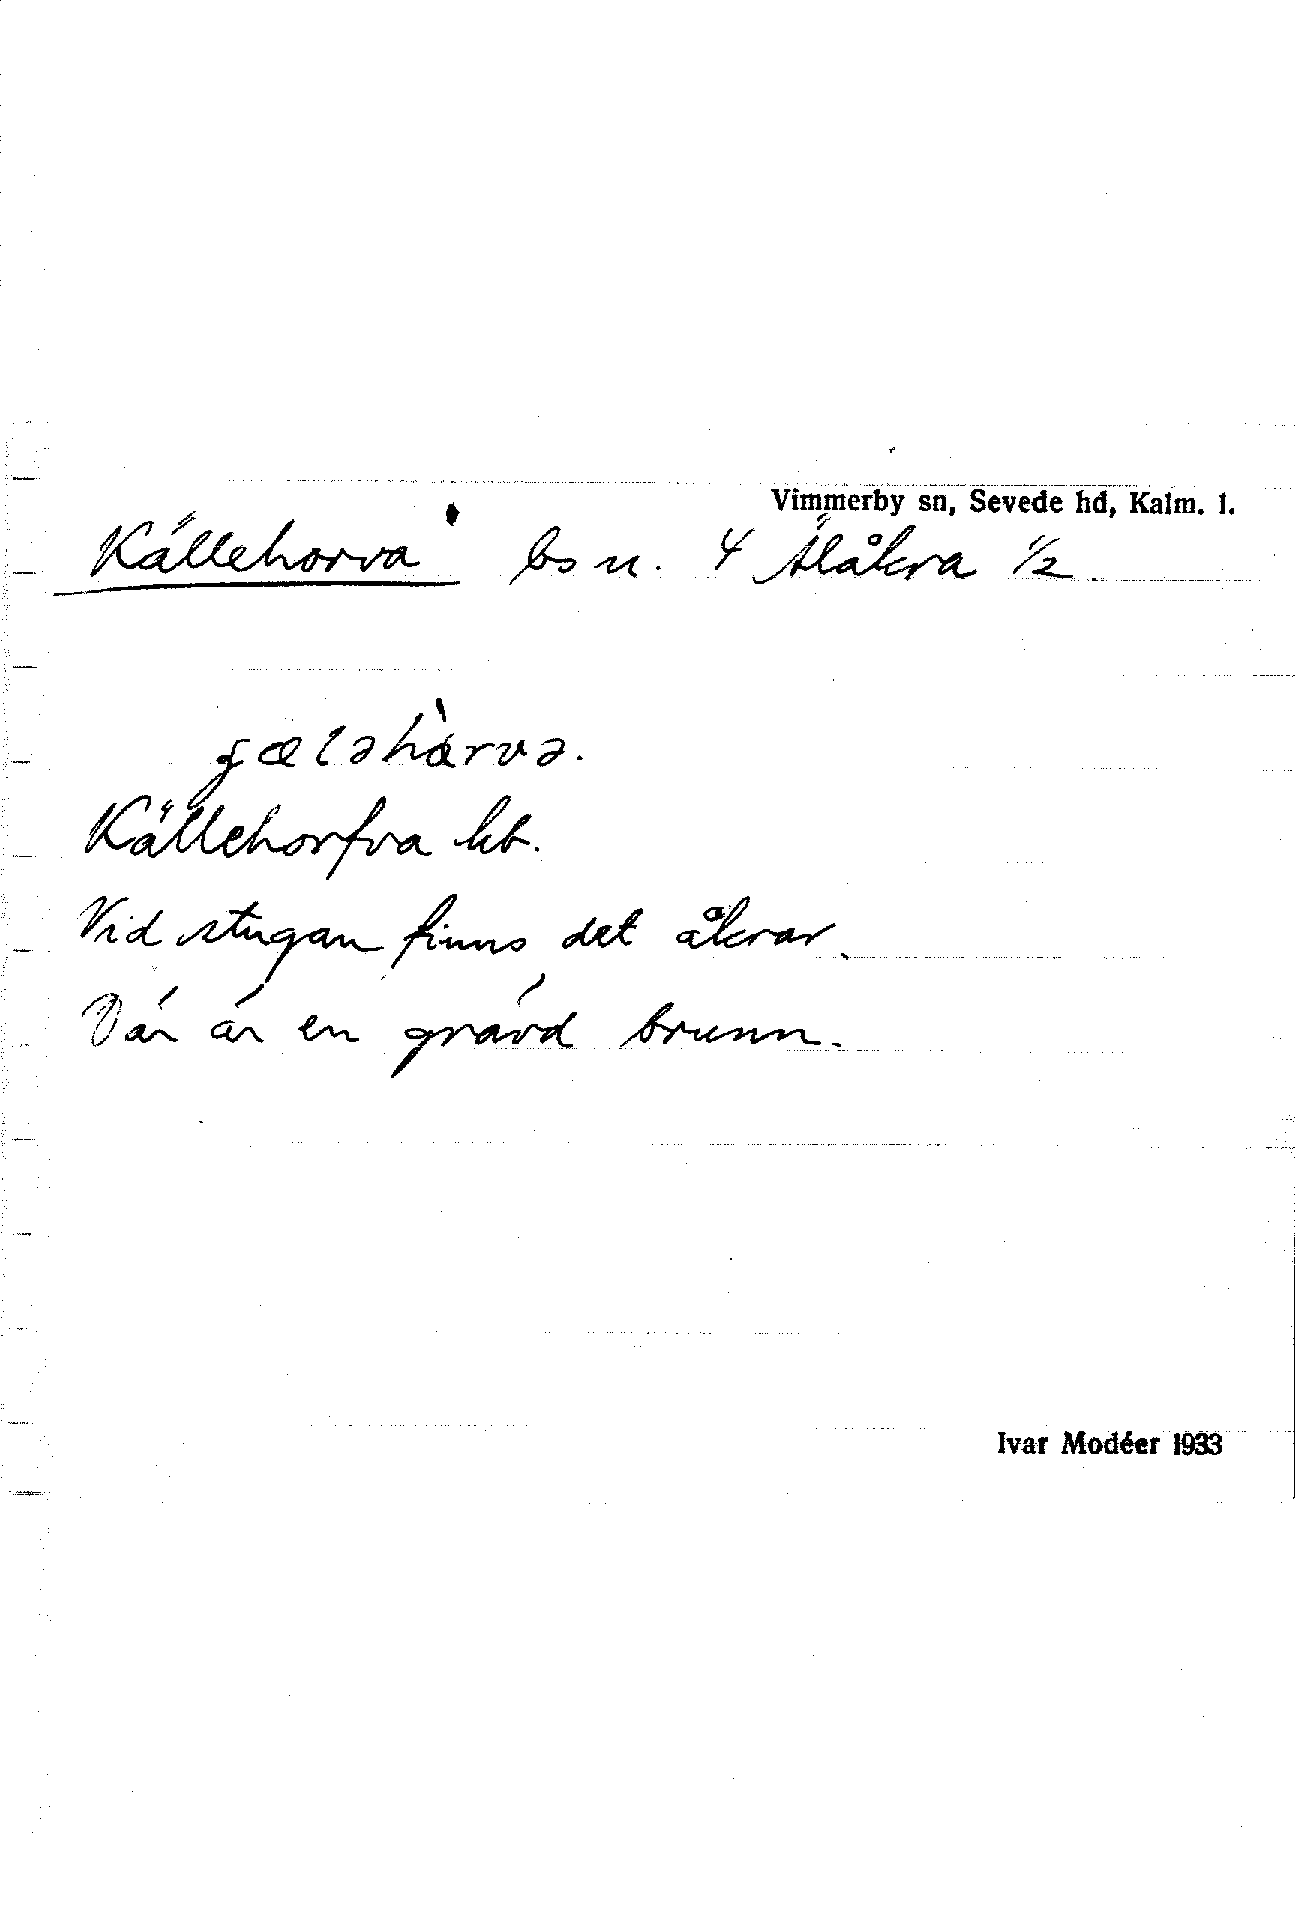 Vimmerby sn, Sevede hd, Kalm. l.
Källehorva bs u. 4 Älåkra 1/2
Källehorfva kb.
Vid stugan finns det åkrar.
Där är en grävd brunn.
Ivar Modéer 1933